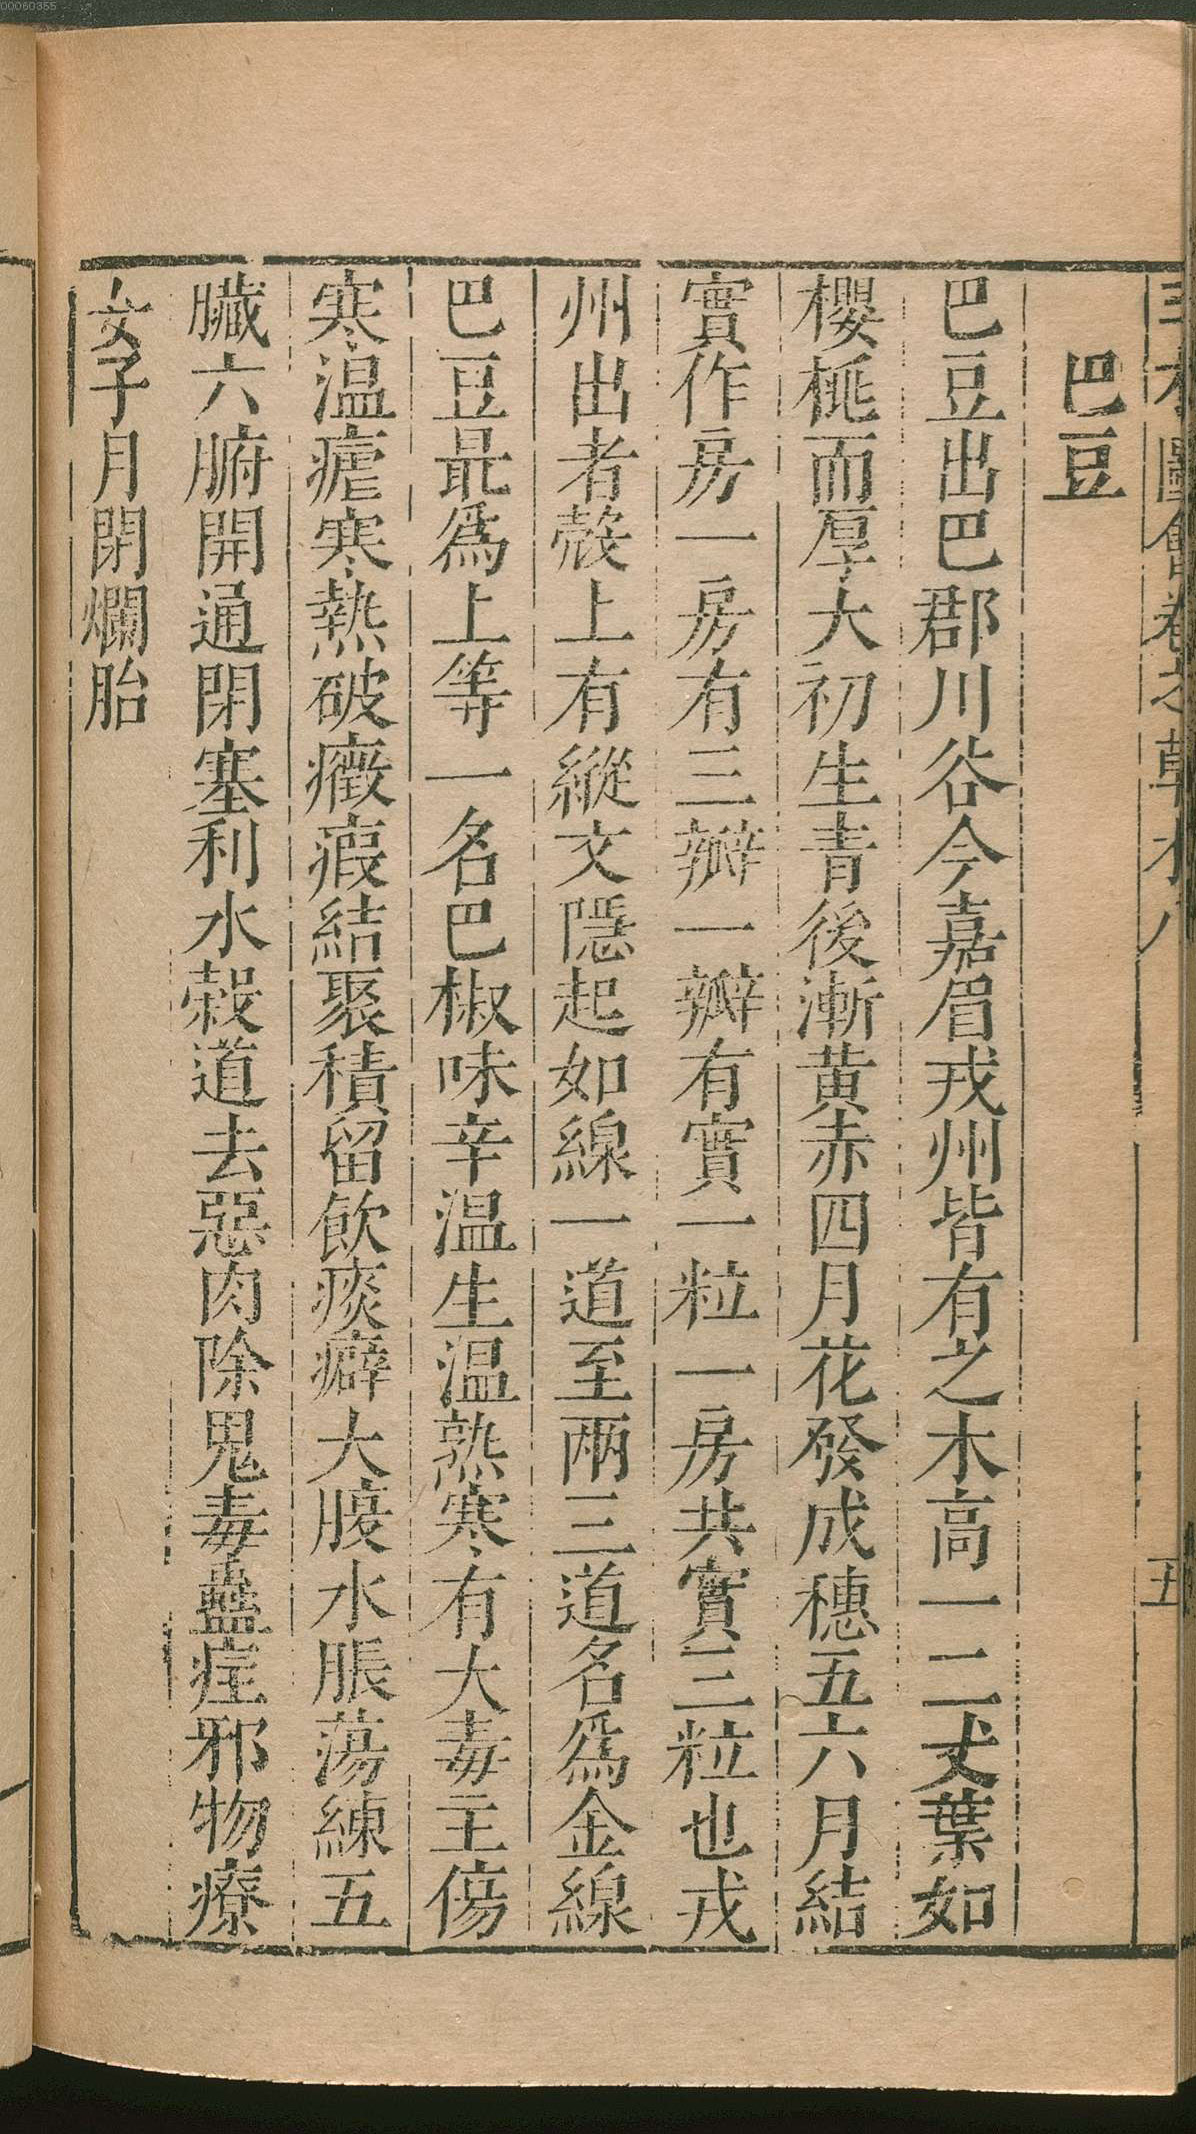 00060355
巴豆
巴豆出巴郡川谷今嘉眉戎州皆有之木高一二丈葉如
櫻桃而厚大初生青後漸黄赤四月花發成穗五六月結
實作房一房有三瓣一瓣有實一粒一房共實三粒也戎
州出者殼上有縱文隱起如線一道至兩三道名爲金線
巴豆最爲上等一名巴椒味辛温生温熟寒有大毒主傷
寒温瘧寒熱破癥瘕結聚積留飲痰癖大腹水脹蕩練五
臟六腑開通閉塞利水榖道去惡肉除鬼毒蠱疰邪物療
女子月閉爛胎